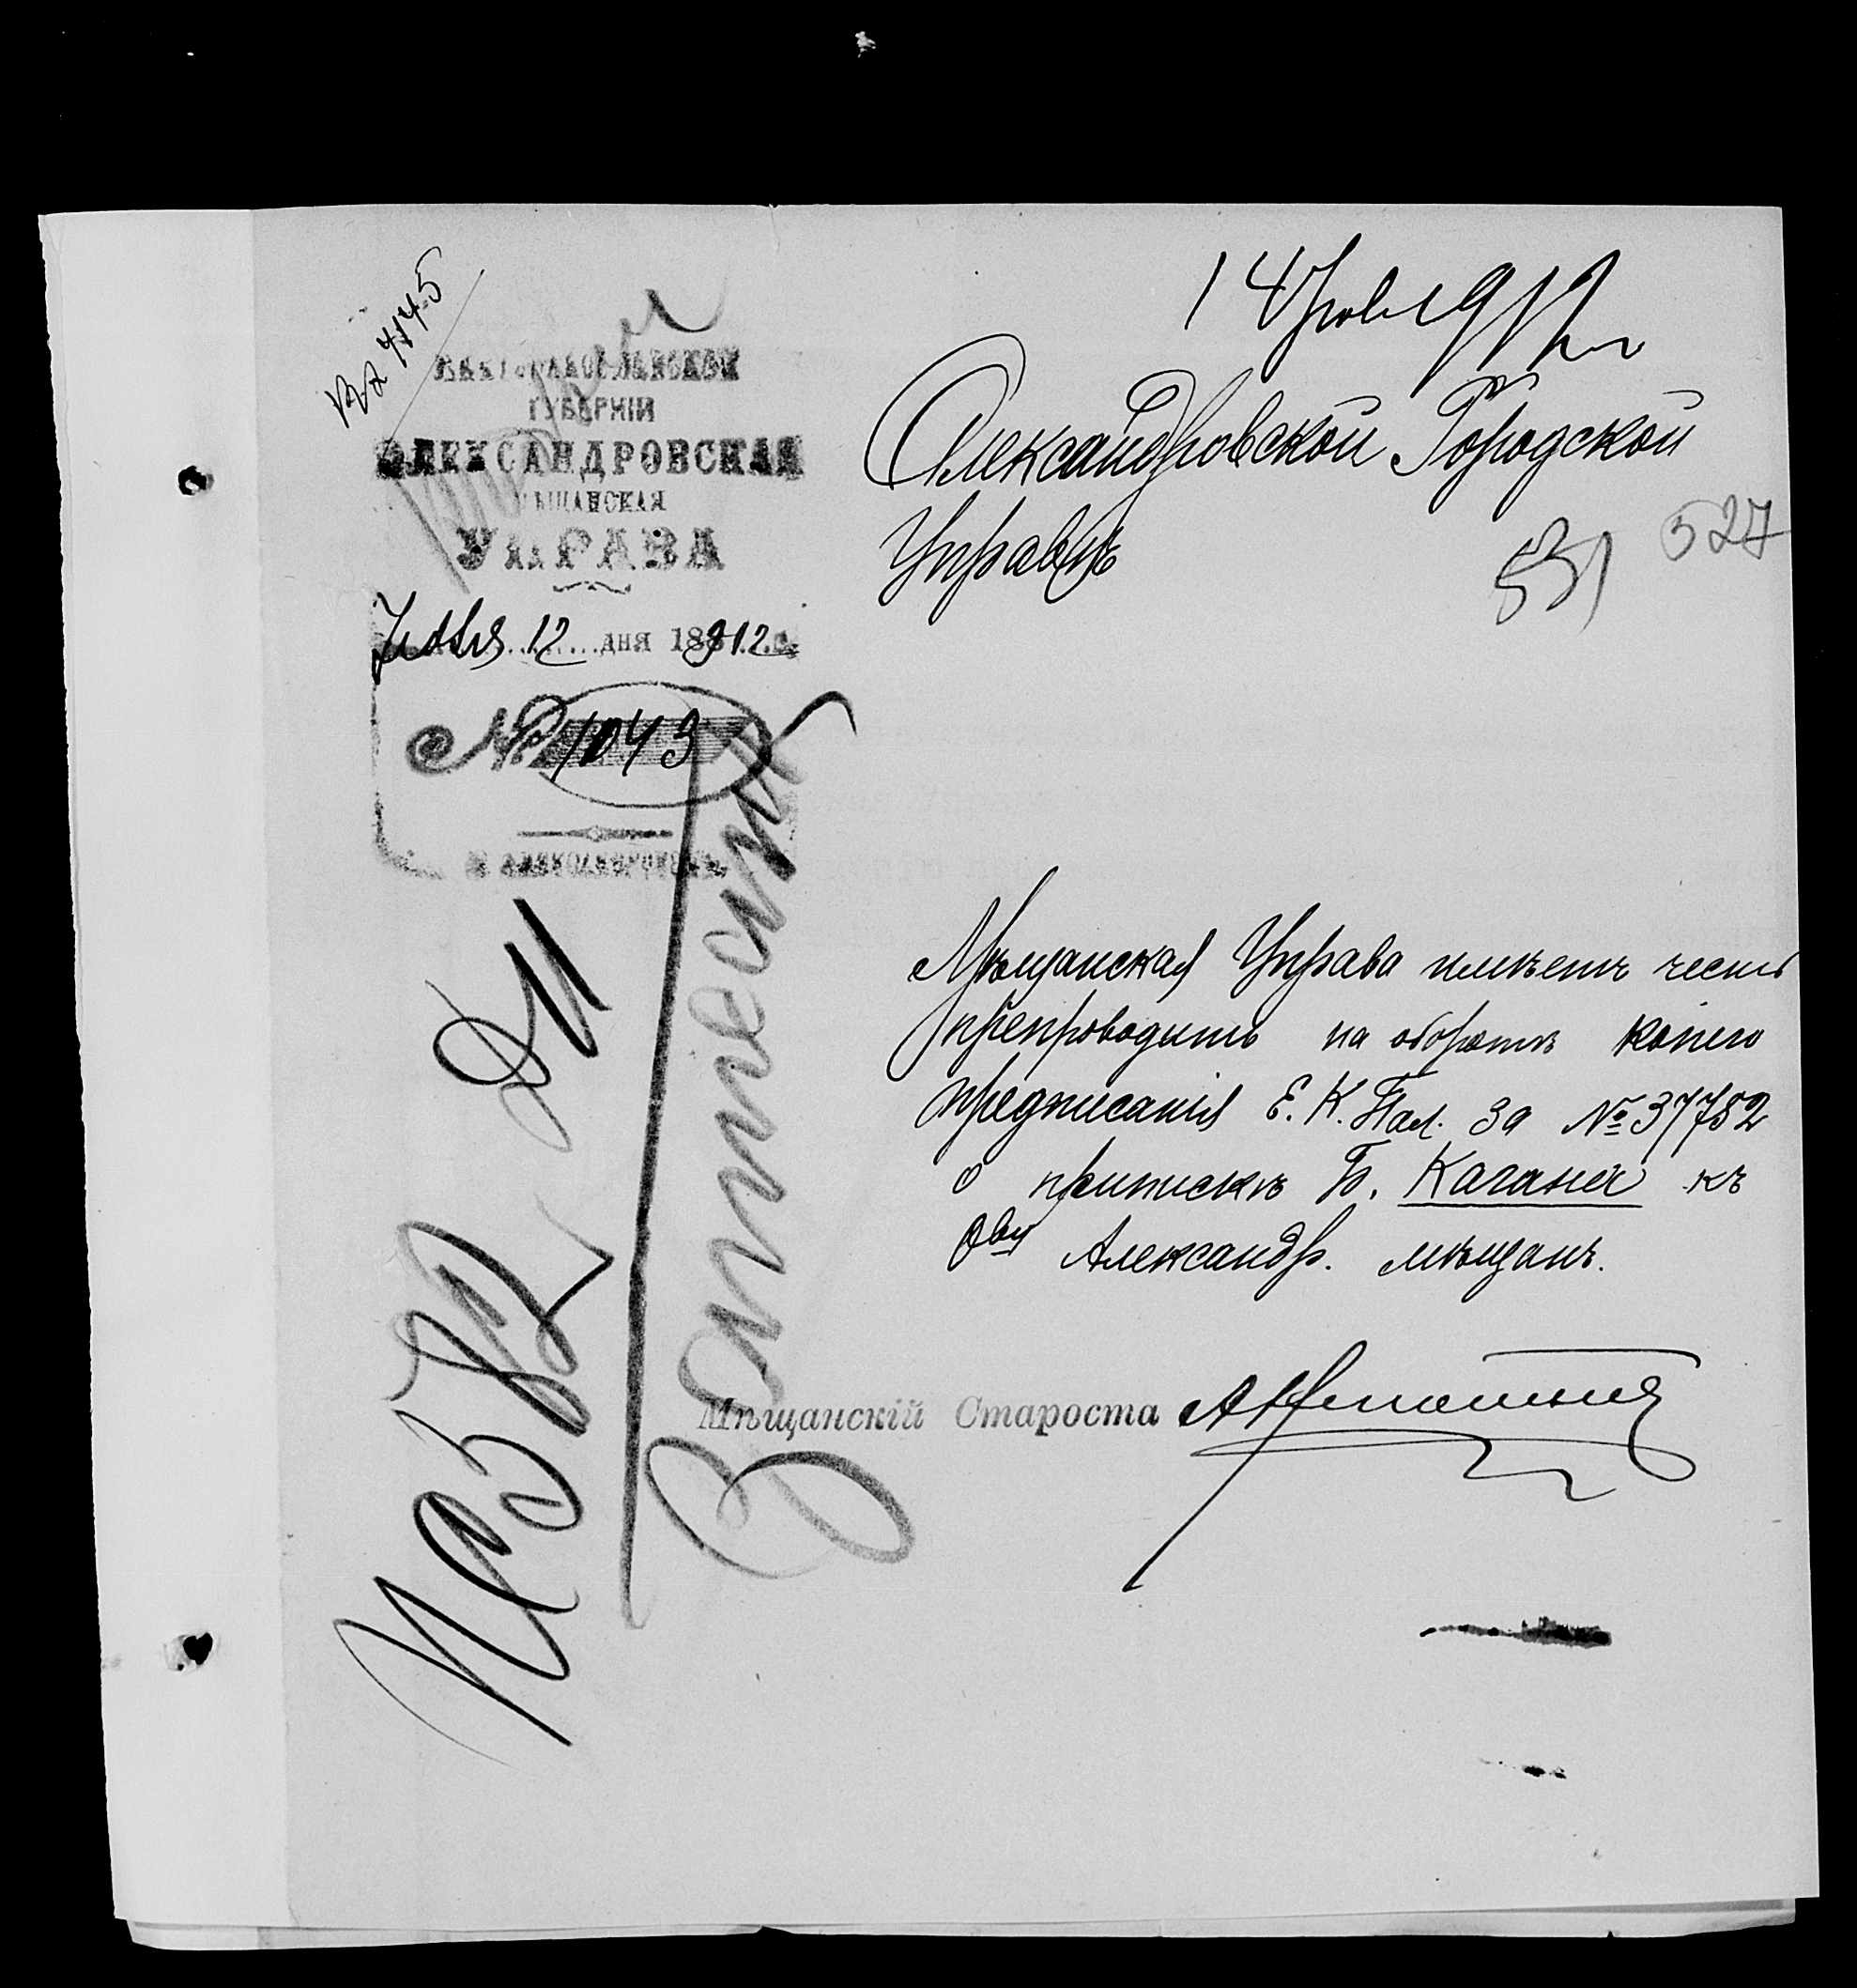 Вх 4145
14 Іюля 1912 г.
ЕКАТЕРИНОСЛАВСКОЙ
ГУБЕРНІИ
АЛЕКСАНДРОВСКАЯ
МѢЩАНСКАЯ
УПРАВА
Іюля 12 дня 1912 г.
№ 1043
Г. АЛЕКСАНДРОВСКЪ
Александровской Городской
Управѣ
531
527
Мѣщанская Управа имѣетъ честь
препроводить на оборотѣ копію
предписанія Е. К. Пал. за № 37752
о припискѣ Б. Кагана къ
Обву Александр. мѣщанъ.
Мѣщанскій Староста